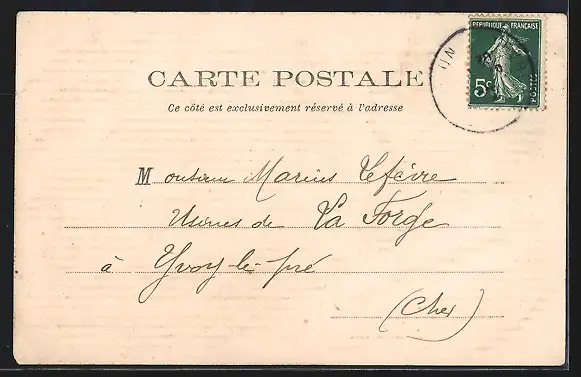 REPUBLIQUE FRANÇAISE
5c
POSTES
CARTE POSTALE
Ce côté est exclusivement réservé à l'adresse
Monsieur Marius Lefèvre
Usines de La Forge
à Yvoy-le-pré
(Cher)